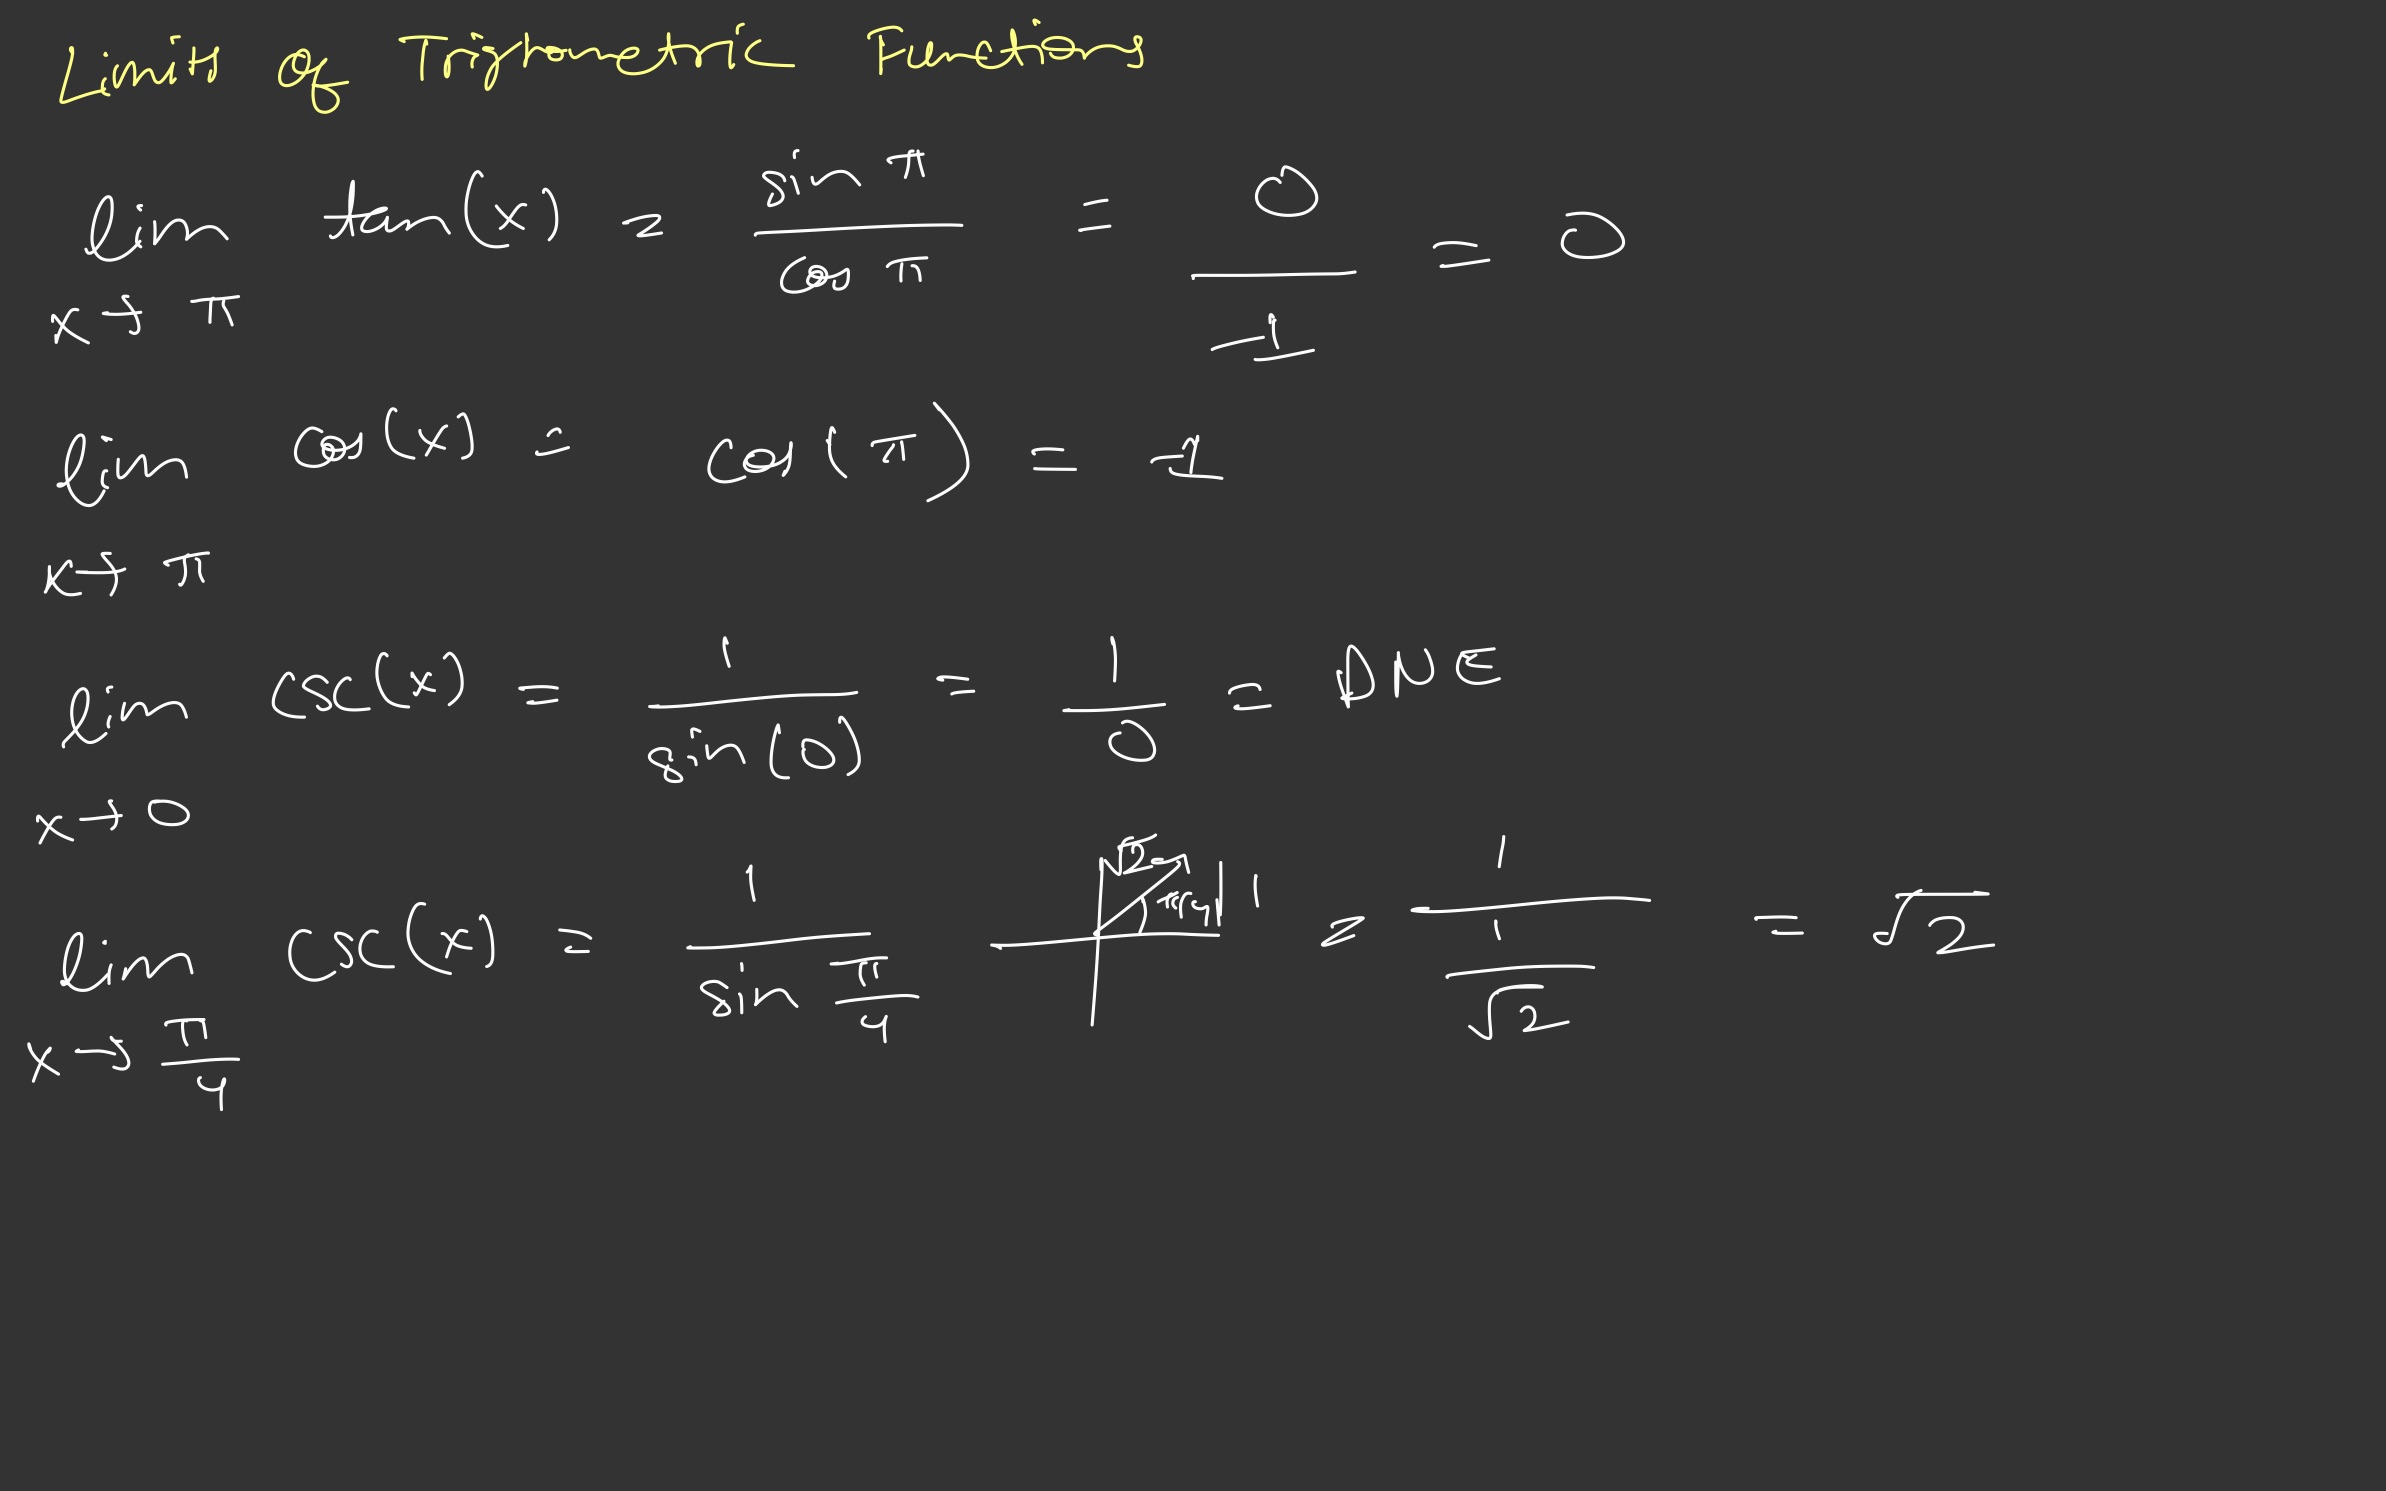 Limits of Trigonometric Functions
lim x→π tan(x) = sin π / cos π = 0 / -1 = 0
lim x→π cos(x) = cos(π) = -1
lim x→0 csc(x) = 1 / sin(0) = 1 / 0 = DNE
lim x→π/4 csc(x) = 1 / sin π/4 √2 π/4 1 = 1 / (1 / √2) = √2